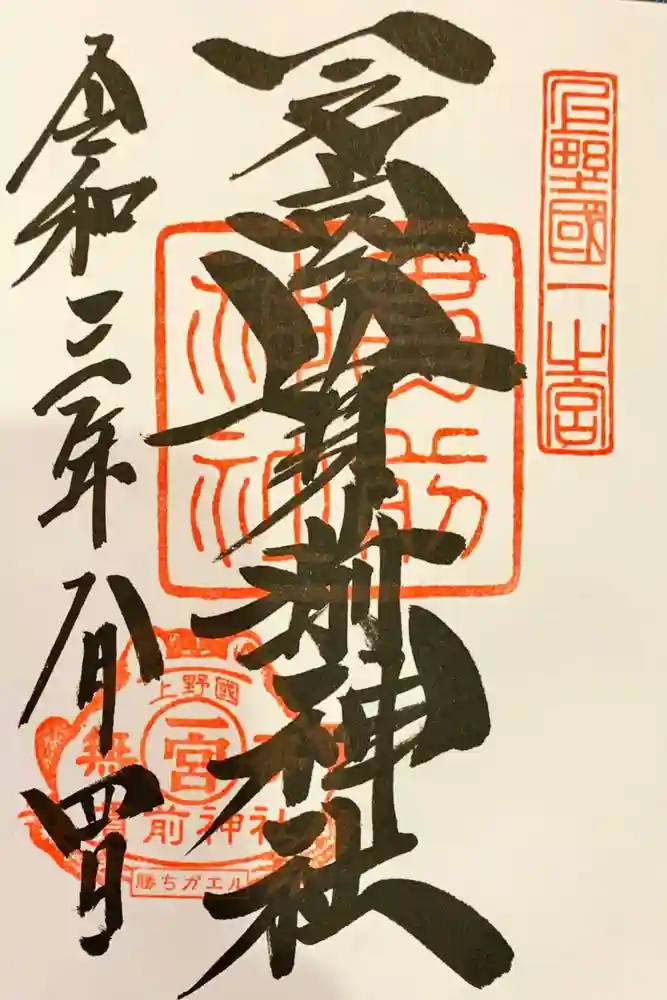 上野國一之宮
一之宮貫前神社
令和三年八月四日
上野國
一宮
無
貫前神社
勝ちガエル